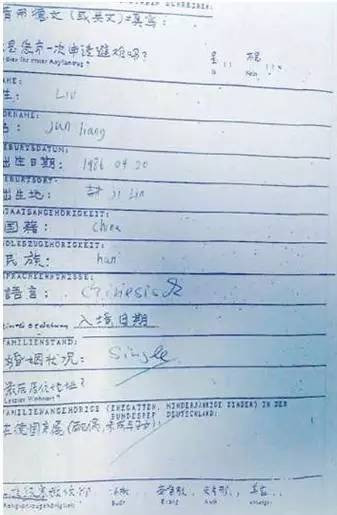 請用德文(或英文)填写:
是您第一次申请避难吗? 是 不是
Ist dies Ihr erster Asylantrag? Ja Nein
NAME:
姓: Liu
VORNAME:
名: jun liang
GEBURTSDATUM:
出生日期: 1986 04 20
GEBURTSORT:
出生地: ji Lin
STAATSANGEHÖRIGKEIT:
国籍: china
VOLKSZUGEHÖRIGKEIT:
民族: han
SPRACHKENNTNISSE:
語言: Chinesisch
入境日期
FAMILIENSTAND:
婚姻状况: Single
最后居住地址?
Letzter Wohnort?
FAMILIENANGEHÖRIGE (EHEGATTEN, MINDERJÄHRIGE KINDER) IN DER
BUNDESREP DEUTSCHLAND:
在德国亲属(配偶,未成年子女):
Religionszugehörigkeit Budd Evang Kath